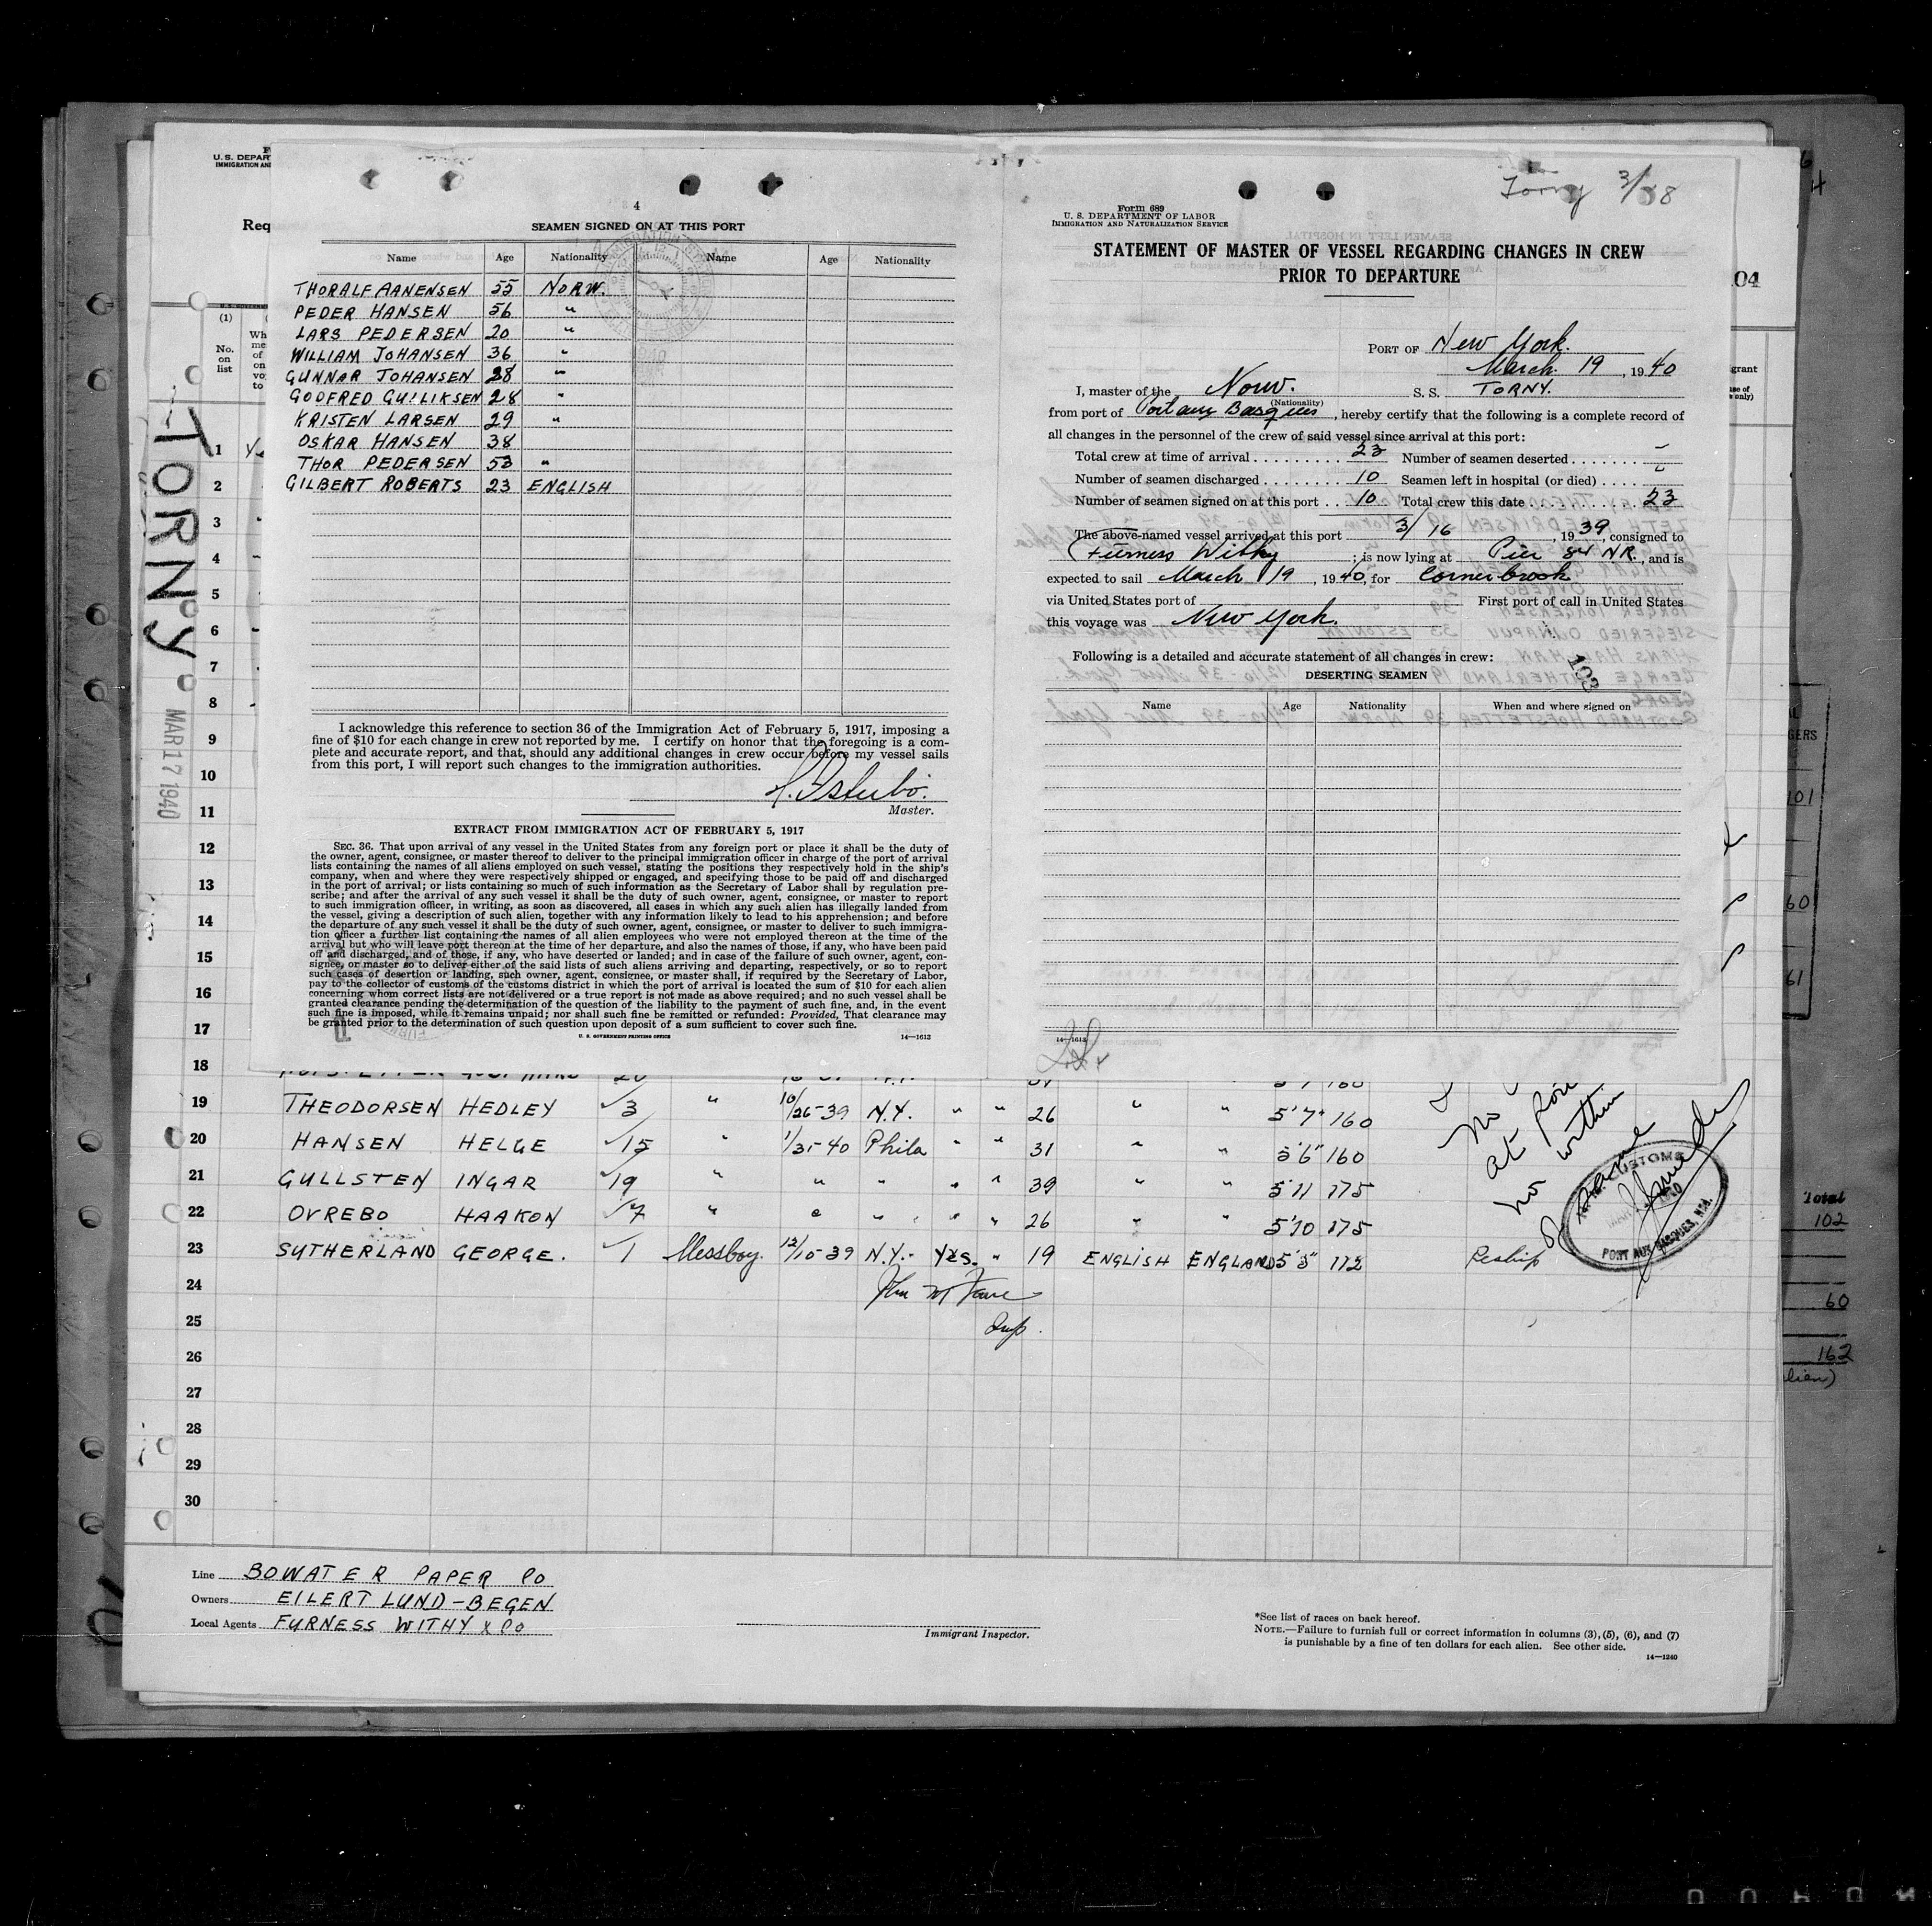 Torny 3/18
4
SEAMEN SIGNED ON AT THIS PORT
Name Age Nationality Name Age Nationality
THORALF AANENSEN 55 NORW.
PEDER HANSEN 56 "
LARS PEDERSEN 20 "
WILLIAM JOHANSEN 36 "
GUNNAR JOHANSEN 28 "
GODFRED GULLIKSEN 28 "
KRISTEN LARSEN 29 "
OSKAR HANSEN 38
THOR PEDERSEN 53 "
GILBERT ROBERTS 23 ENGLISH
I acknowledge this reference to section 36 of the Immigration Act of February 5, 1917, imposing a
fine of $10 for each change in crew not reported by me. I certify on honor that the foregoing is a com-
plete and accurate report, and that, should any additional changes in crew occur before my vessel sails
from this port, I will report such changes to the immigration authorities.
Master.
EXTRACT FROM IMMIGRATION ACT OF FEBRUARY 5, 1917
SEC. 36. That upon arrival of any vessel in the United States from any foreign port or place it shall be the duty of
the owner, agent, consignee, or master thereof to deliver to the principal immigration officer in charge of the port of arrival
lists containing the names of all aliens employed on such vessel, stating the positions they respectively hold in the ship's
company, when and where they were respectively shipped or engaged, and specifying those to be paid off and discharged
in the port of arrival; or lists containing so much of such information as the Secretary of Labor shall by regulation pre-
scribe; and after the arrival of any such vessel it shall be the duty of such owner, agent, consignee, or master to report
to such immigration officer, in writing, as soon as discovered, all cases in which any such alien has illegally landed from
the vessel, giving a description of such alien, together with any information likely to lead to his apprehension; and before
the departure of any such vessel it shall be the duty of such owner, agent, consignee, or master to deliver to such immigra-
tion officer a further list containing the names of all alien employees who were not employed thereon at the time of the
arrival but who will leave port thereon at the time of her departure, and also the names of those, if any, who have been paid
off and discharged, and of those, if any, who have deserted or landed; and in case of the failure of such owner, agent, con-
signee, or master so to deliver either of the said lists of such aliens arriving and departing, respectively, or so to report
such cases of desertion or landing, such owner, agent, consignee, or master shall, if required by the Secretary of Labor,
pay to the collector of customs of the customs district in which the port of arrival is located the sum of $10 for each alien
concerning whom correct lists are not delivered or a true report is not made as above required; and no such vessel shall be
granted clearance pending the determination of the question of the liability to the payment of such fine, and, in the event
such fine is imposed, while it remains unpaid; nor shall such fine be remitted or refunded: Provided, That clearance may
be granted prior to the determination of such question upon deposit of a sum sufficient to cover such fine.
U. S. GOVERNMENT PRINTING OFFICE 14—1613
Form 689
U. S. DEPARTMENT OF LABOR
IMMIGRATION AND NATURALIZATION SERVICE
STATEMENT OF MASTER OF VESSEL REGARDING CHANGES IN CREW
PRIOR TO DEPARTURE
PORT OF New York.
March 19, 1940
I, master of the Norw. S. S. TORNY.
(Nationality)
from port of Port aux Basques, hereby certify that the following is a complete record of
all changes in the personnel of the crew of said vessel since arrival at this port:
Total crew at time of arrival 23 Number of seamen deserted –
Number of seamen discharged 10 Seamen left in hospital (or died)
Number of seamen signed on at this port 10 Total crew this date 23
The above-named vessel arrived at this port 3/16, 1939, consigned to
Furness Withy; is now lying at Pier 84 N.R., and is
expected to sail March 19, 1940, for Cornerbrook
via United States port of First port of call in United States
this voyage was New York.
Following is a detailed and accurate statement of all changes in crew:
103
DESERTING SEAMEN
Name Age Nationality When and where signed on
14—1613
TORNY
MAR 17 1940
U. S. DEPAR
IMMIGRATION AN
Req
(1)
No. on list
1
2
3
4
5
6
7
8
9
10
11
12
13
14
15
16
17
18
19 THEODORSEN HEDLEY 3 " 10/26-39 N.Y. " " 26 " " 5'7" 160
20 HANSEN HELGE 15 " 1/31-40 Phila " " 31 " " 5'6" 160
21 GULLSTEN INGAR 19 " " " " " 39 " " 5'11 175
22 OVREBO HAAKON 7 " " " " " 26 " " 5'10 175
23 SUTHERLAND GEORGE. 1 Messboy. 12/10-39 N.Y. Yes. " 19 ENGLISH ENGLAND 5'5" 112 Reship
24
25
26
27
28
29
30
CUSTOMS
PORT AUX BASQUES, Nfld.
Line BOWATER PAPER CO
Owners EILERT LUND-BEGEN
Local Agents FURNESS WITHY & CO
Immigrant Inspector.
*See list of races on back hereof.
NOTE.—Failure to furnish full or correct information in columns (3), (5), (6), and (7)
is punishable by a fine of ten dollars for each alien. See other side.
14—1240
04
101
60
61
Total
102
60
162